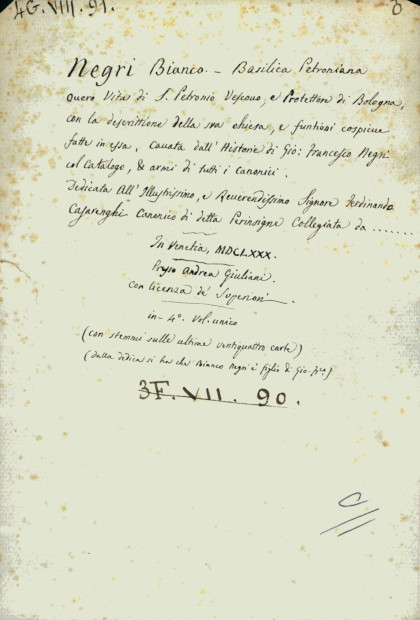 4G. VIII. 91.
Negri Bianco. - Basilica Petroniana
overo Vita di S. Petronio Vescovo, e Protettore di Bologna,
con la descrittione della sua chiesa, e funtioni cospicue
fatte in essa, Cavata dall' Historie di Gio: Francesco Negri
col Catalogo, & armi di tutti i Canonici.
Dedicata All' Illustrissimo, e Reverendissimo Signore Ferdinando
Casarenghi Canonico di detta Perinsigne Collegiata da .......
In Venetia, MDCLXXX.
Presso Andrea Giuliani.
Con licenza de' Superiori.
in-4°. Vol. unico
(con stemmi sulle ultime ventiquattro carte)
(dalla dedica si ha che Bianco Negri è figlio di Gio. Fr.co)
3F. VII. 90.